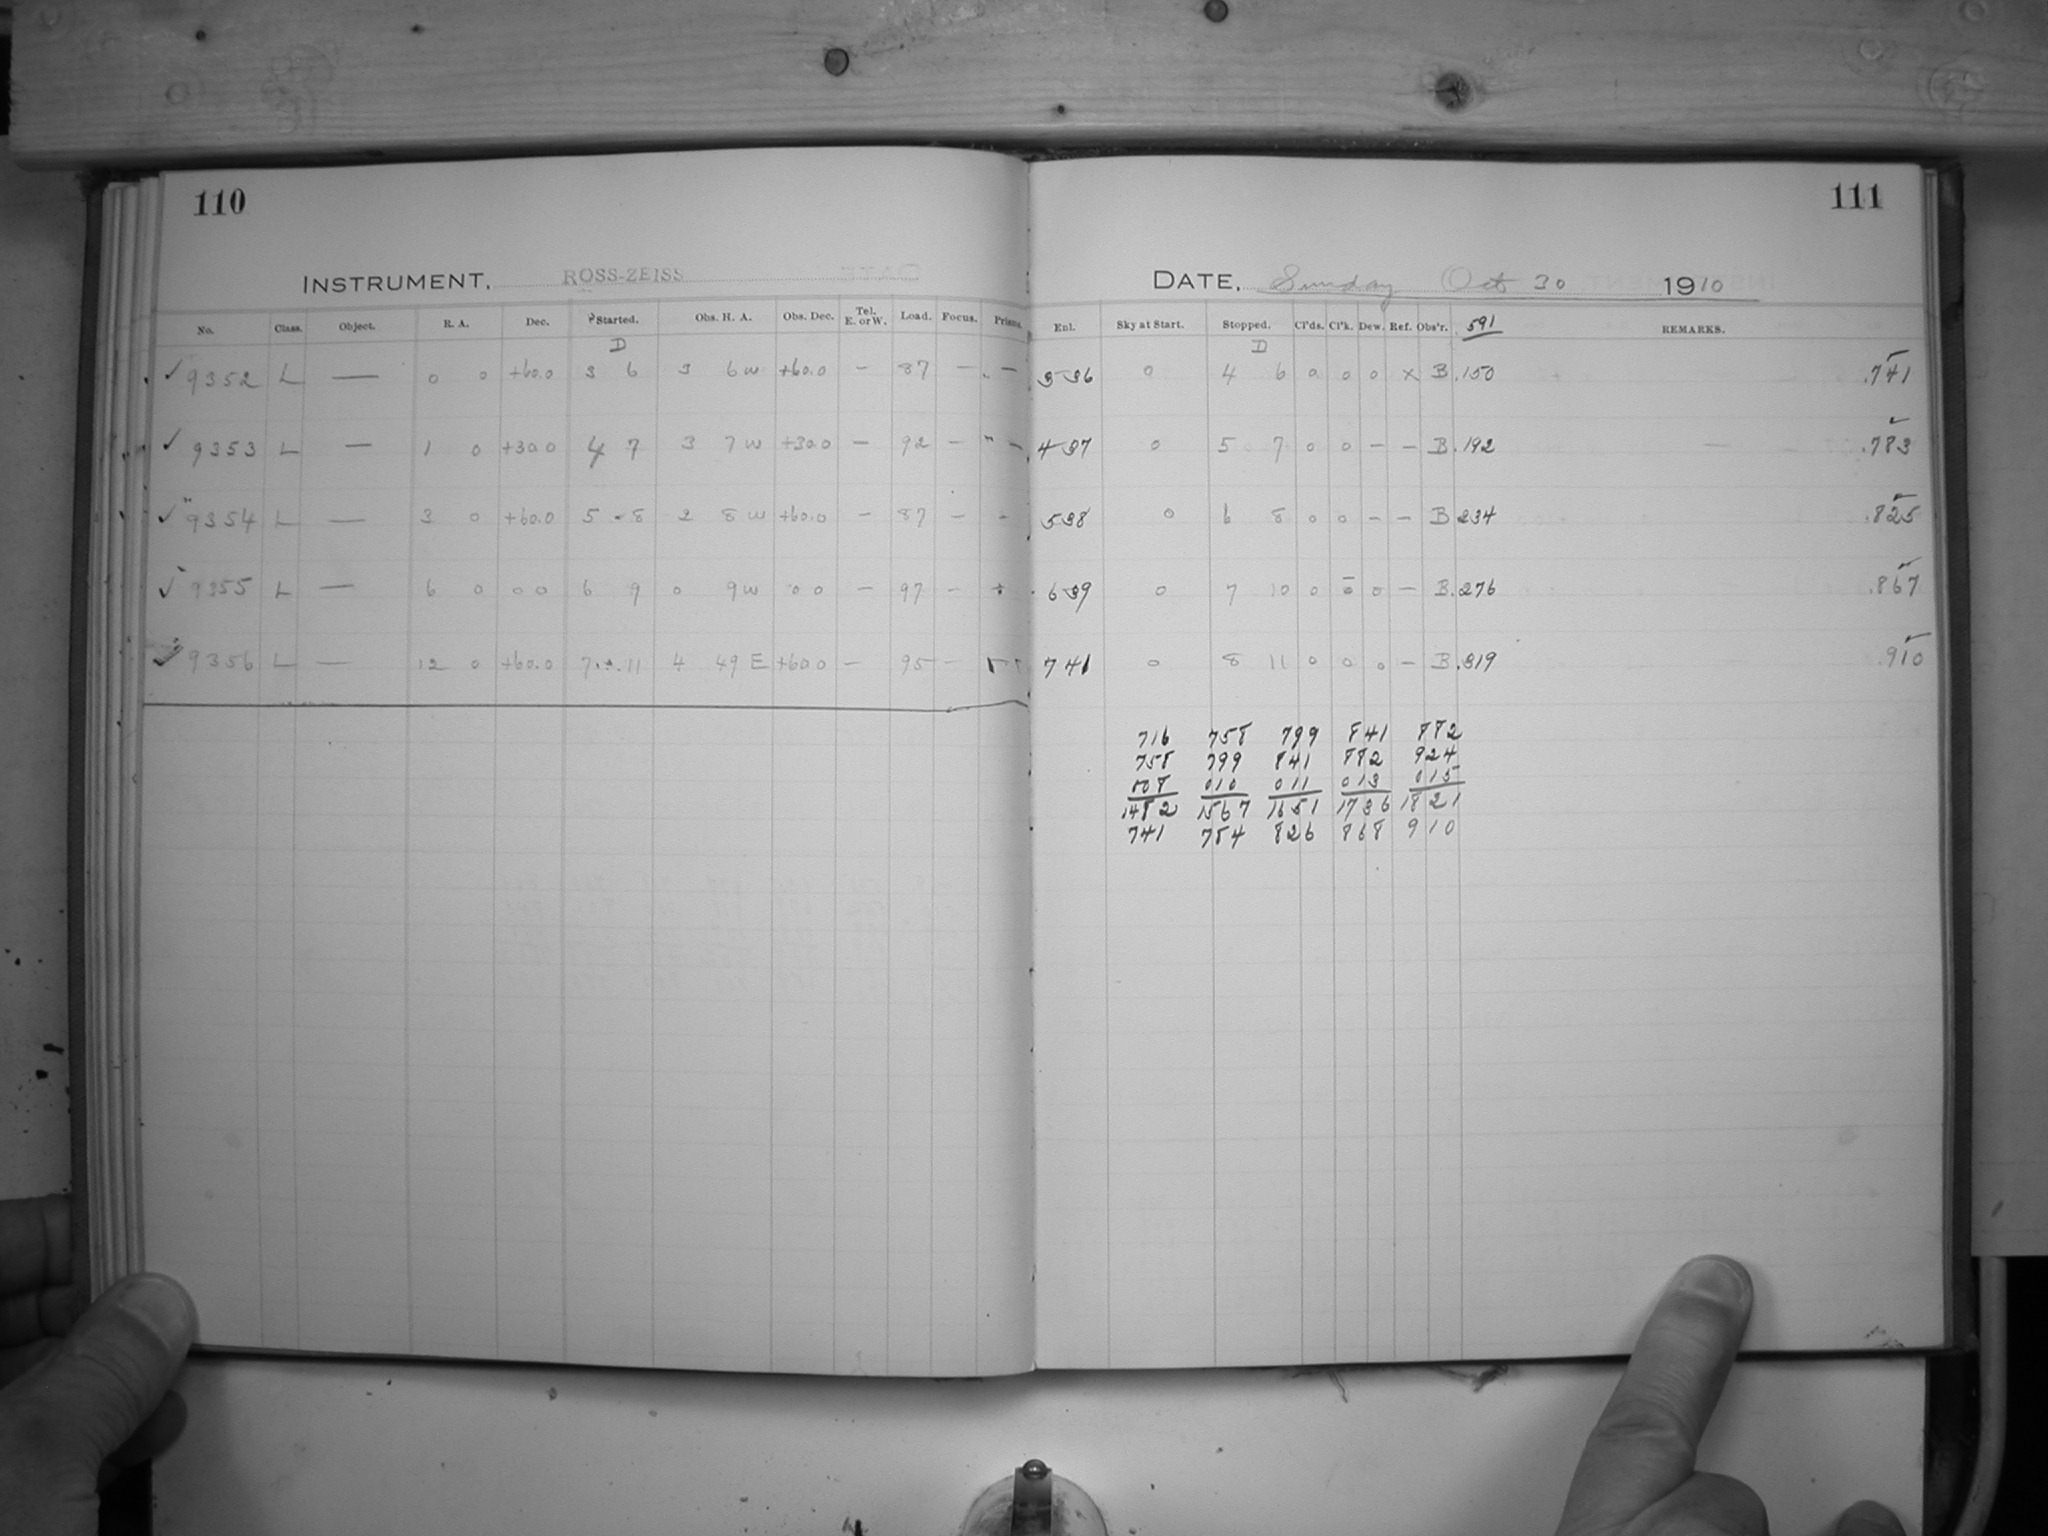 110
INSTRUMENT, ROSS-ZEISS
No. Class. Object. R. A. Dec. Started. Obs. H. A. Obs. Dec. Tel. E. or W. Load. Focus. Prisms.
D
✓ 9352 L — 0 0 +60.0 3 6 3 6 w +60.0 — 87 — —
✓ 9353 L — 1 0 +30.0 4 7 3 7 w +30.0 — 92 — —
✓ 9354 L — 3 0 +60.0 5 8 2 8 w +60.0 — 87 — -
✓ 9355 L — 6 0 0 0 6 9 0 9 w 0 0 — 97 —
✓ 9356 L — 12 0 +60.0 7 11 4 49 E +60.0 — 95 —
111
DATE, Sunday Oct 30 1910
Epl. Sky at Start. Stopped. Cl'ds. Cl'k. Dew. Ref. Obs'r. .591 REMARKS.
D
3 36 0 4 6 0 0 0 x B .150 .741 ✓
4 37 0 5 7 0 0 — — B .192 — .783 ✓
5 38 0 6 8 0 0 — — B .234 .825 ✓
6 39 0 7 10 0 0 0 — B .276 .867 ✓
7 41 0 8 11 0 0 0 — B .319 .910 ✓
716 758 799 841 882
758 799 841 882 924
008 010 011 013 015
1482 1567 1651 1736 1821
741 784 826 868 910